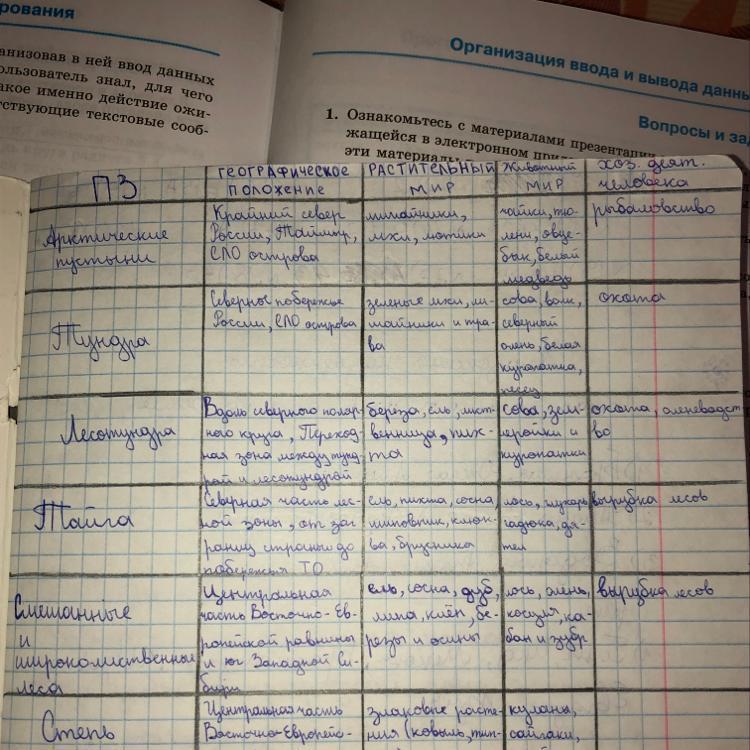 рования
анизовав в ней ввод данных
ользователь знал, для чего
акое именно действие ожи-
тствующие текстовые сооб-
Организация ввода и вывода данны
Вопросы и зад
1. Ознакомьтесь с материалами презентации
жащейся в электронном
эти материалы
ПЗ
ГЕОГРАФИЧЕСКОЕ
ПОЛОЖЕНИЕ
РАСТИТЕЛЬНЫЙ
МИР
Животный
МИР
хоз. деят.
человека
Арктические
пустыни
Крайний север
России, Таймыр,
СЛО острова
лишайники,
мхи, мотыки
чайки, тю-
лени, овце-
бык, белый
медведь
рыбаловство
Тундра
Северное побережье
России, СЛО острова
зеленые мхи, ли-
шайники и тра-
ва
сова, волк,
северный
олень, белая
куропатка,
песец
охота
Лесотундра
Вдоль северного поляр-
ного круга, Переход-
ная зона между тунд-
рой и лесотундрой
берёза, ель, лист-
венница, пих-
та
сова, зем-
леройки и
куропатки
охота, оленеводст
во
Тайга
Северная часть лес-
ной зоны, от зап
границ страны до
побережья ТО
ель, пихта, сосна,
шиповник, клюк-
ва, брусника
лось, глухарь
гадюка, дя-
тел
вырубка лесов
Смешанные
и
широколиственные
леса
Центральная
часть Восточно-Ев-
ропейской равнины
и юг Западной Си-
бири
ель, сосна, дуб,
липа, клён, бе-
резы и осины
лось, олень,
косуля, ка-
бан и зубр
вырубка лесов
Степь
Центральная часть
Восточно-Европейс-
злаковые расте-
ния (ковыль, тип-
куланы,
сайгаки,